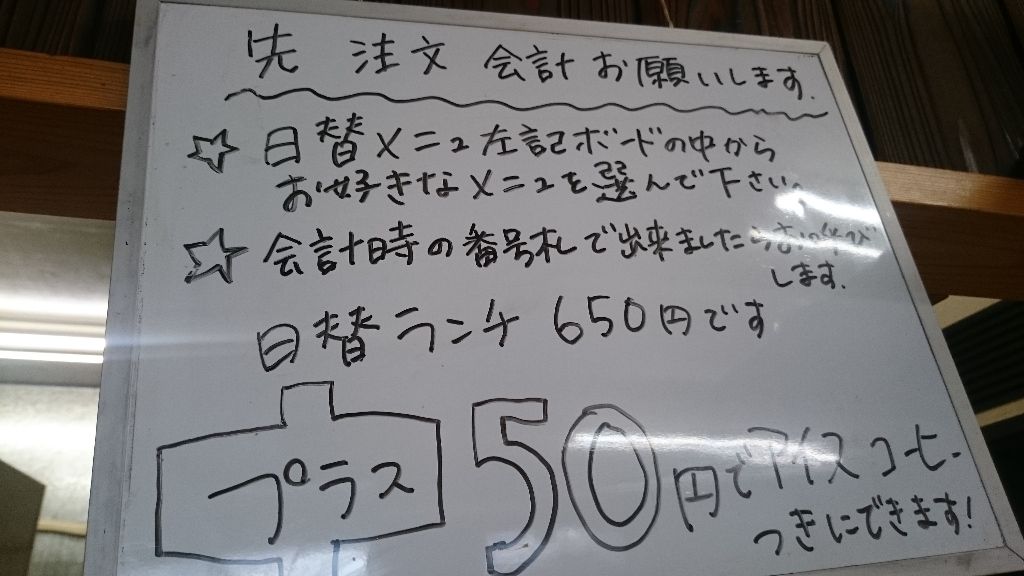 先 注文 会計 お願いします.
☆ 日替メニュ左記ボードの中から
お好きなメニュを選んで下さい。
☆ 会計時の番号札で出来ましたらお呼び
します.
日替ランチ 650円です
プラス 50円でアイスコーヒー
つきにできます!